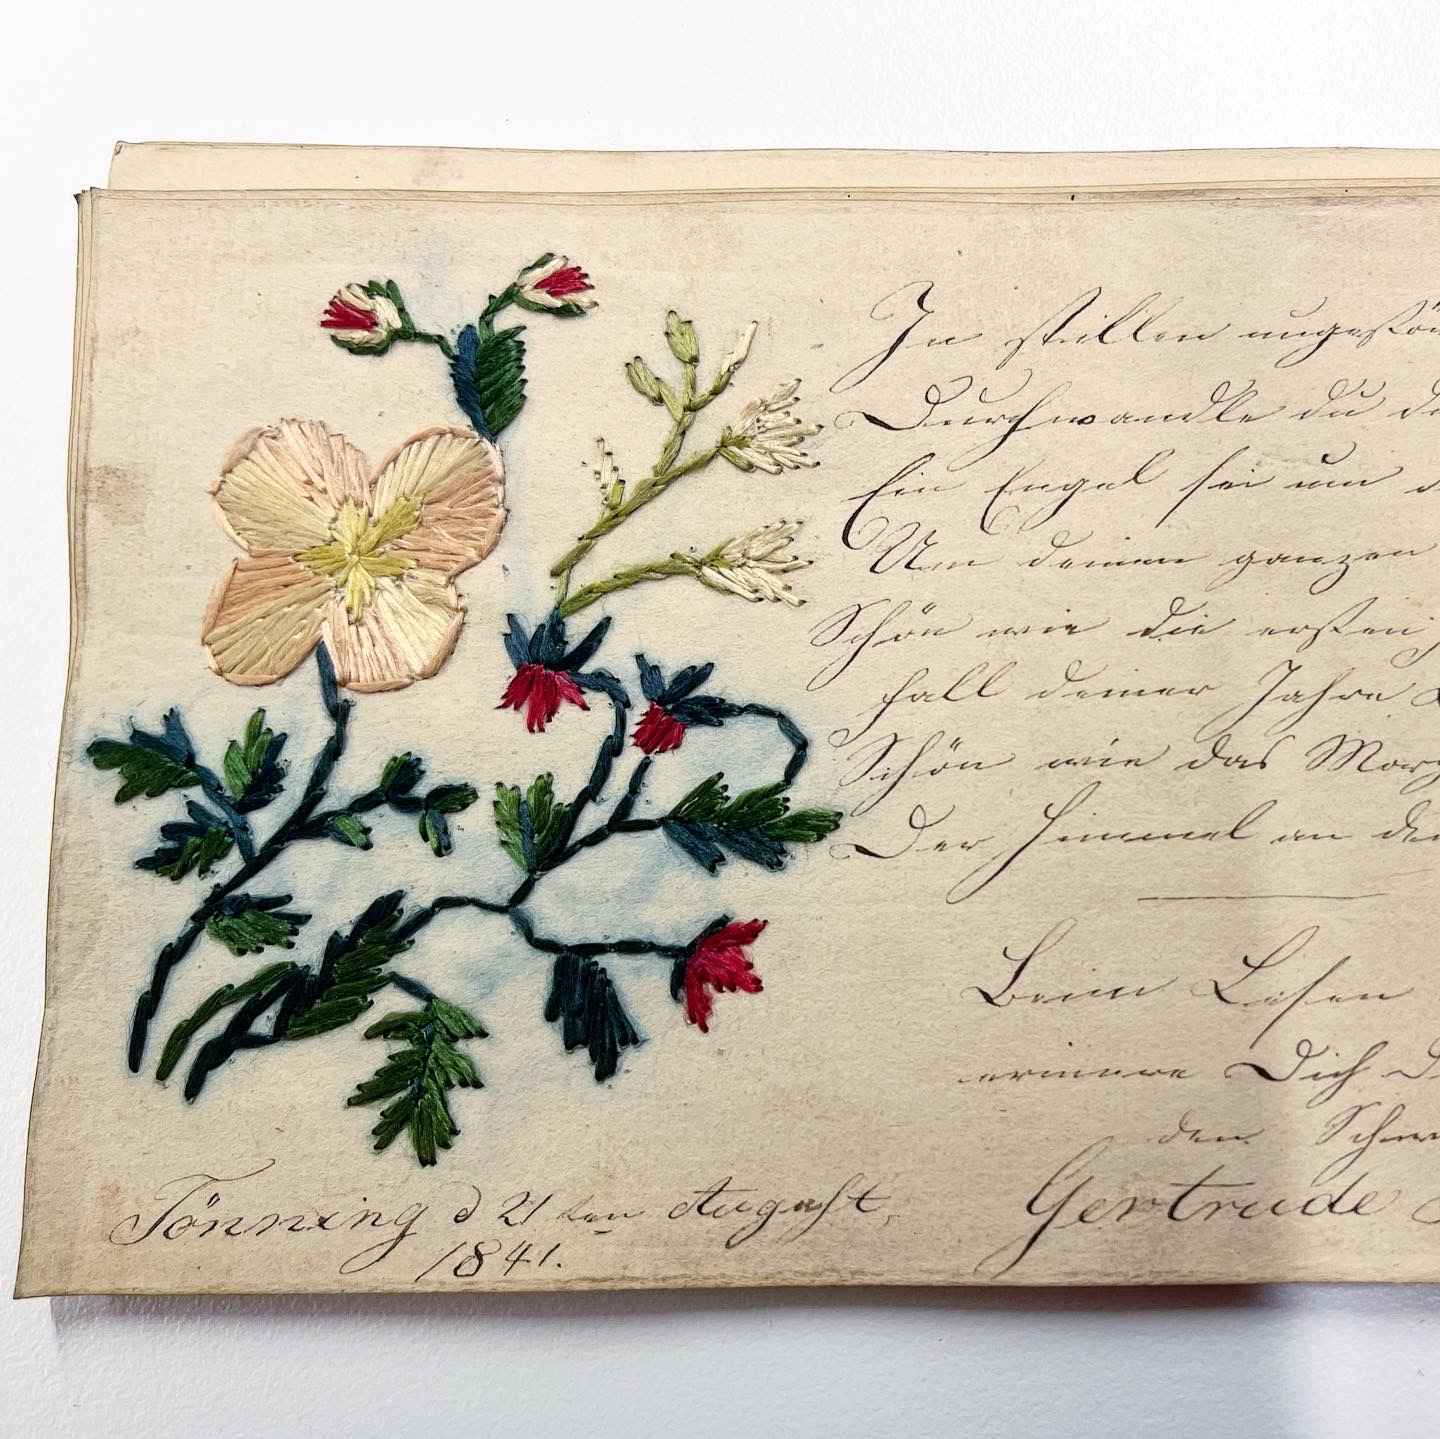 In stillen ungestö
Durchwandle du d
Ein Engel sei um d
Um deinen ganzen
Schön wie die ersten
fall deiner Jahre L
Schön wie das Morg
Der Himmel an de
Beim Lesen
erinnere Dich d
den Schw
Gertrude
Tönning d 21 ten August,
1841.